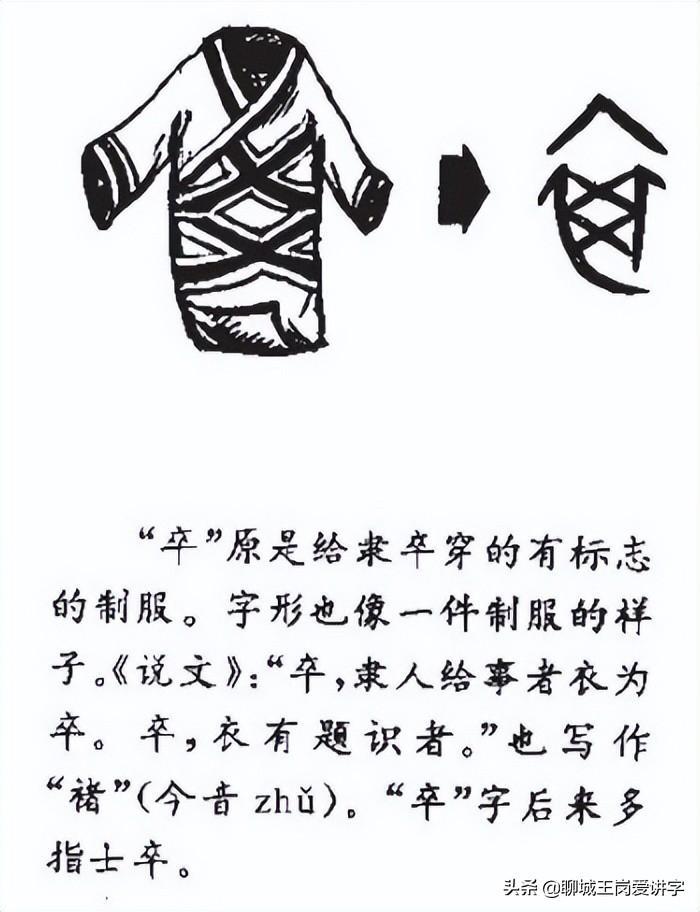 “卒”原是给隶卒穿的有标志
的制服。字形也像一件制服的样
子。《说文》:“卒,隶人给事者衣为
卒。卒,衣有题识者。”也写作
“褚”(今音zhǔ)。“卒”字后来多
指士卒。
头条 @聊城王岗爱讲字